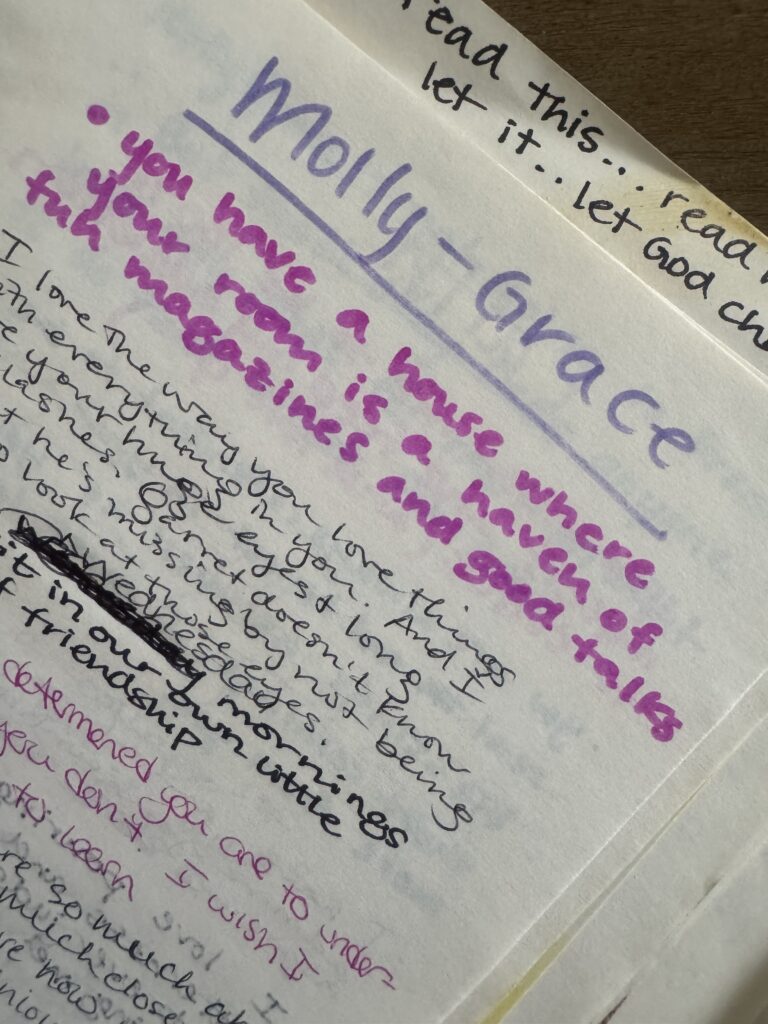 read this... read
let it.. let God
Molly-Grace
• you have a house where
your room is a haven of
tuh magazines and good talks
I love the way you love things
everything in you. And I
your huge eyes & long
lashes. Garret doesn't know
he's missing by not being
look at those eyes.
Wednesday mornings
in our own little
friendship
determened you are to under-
you don't. I wish I
to learn
so much
much
now